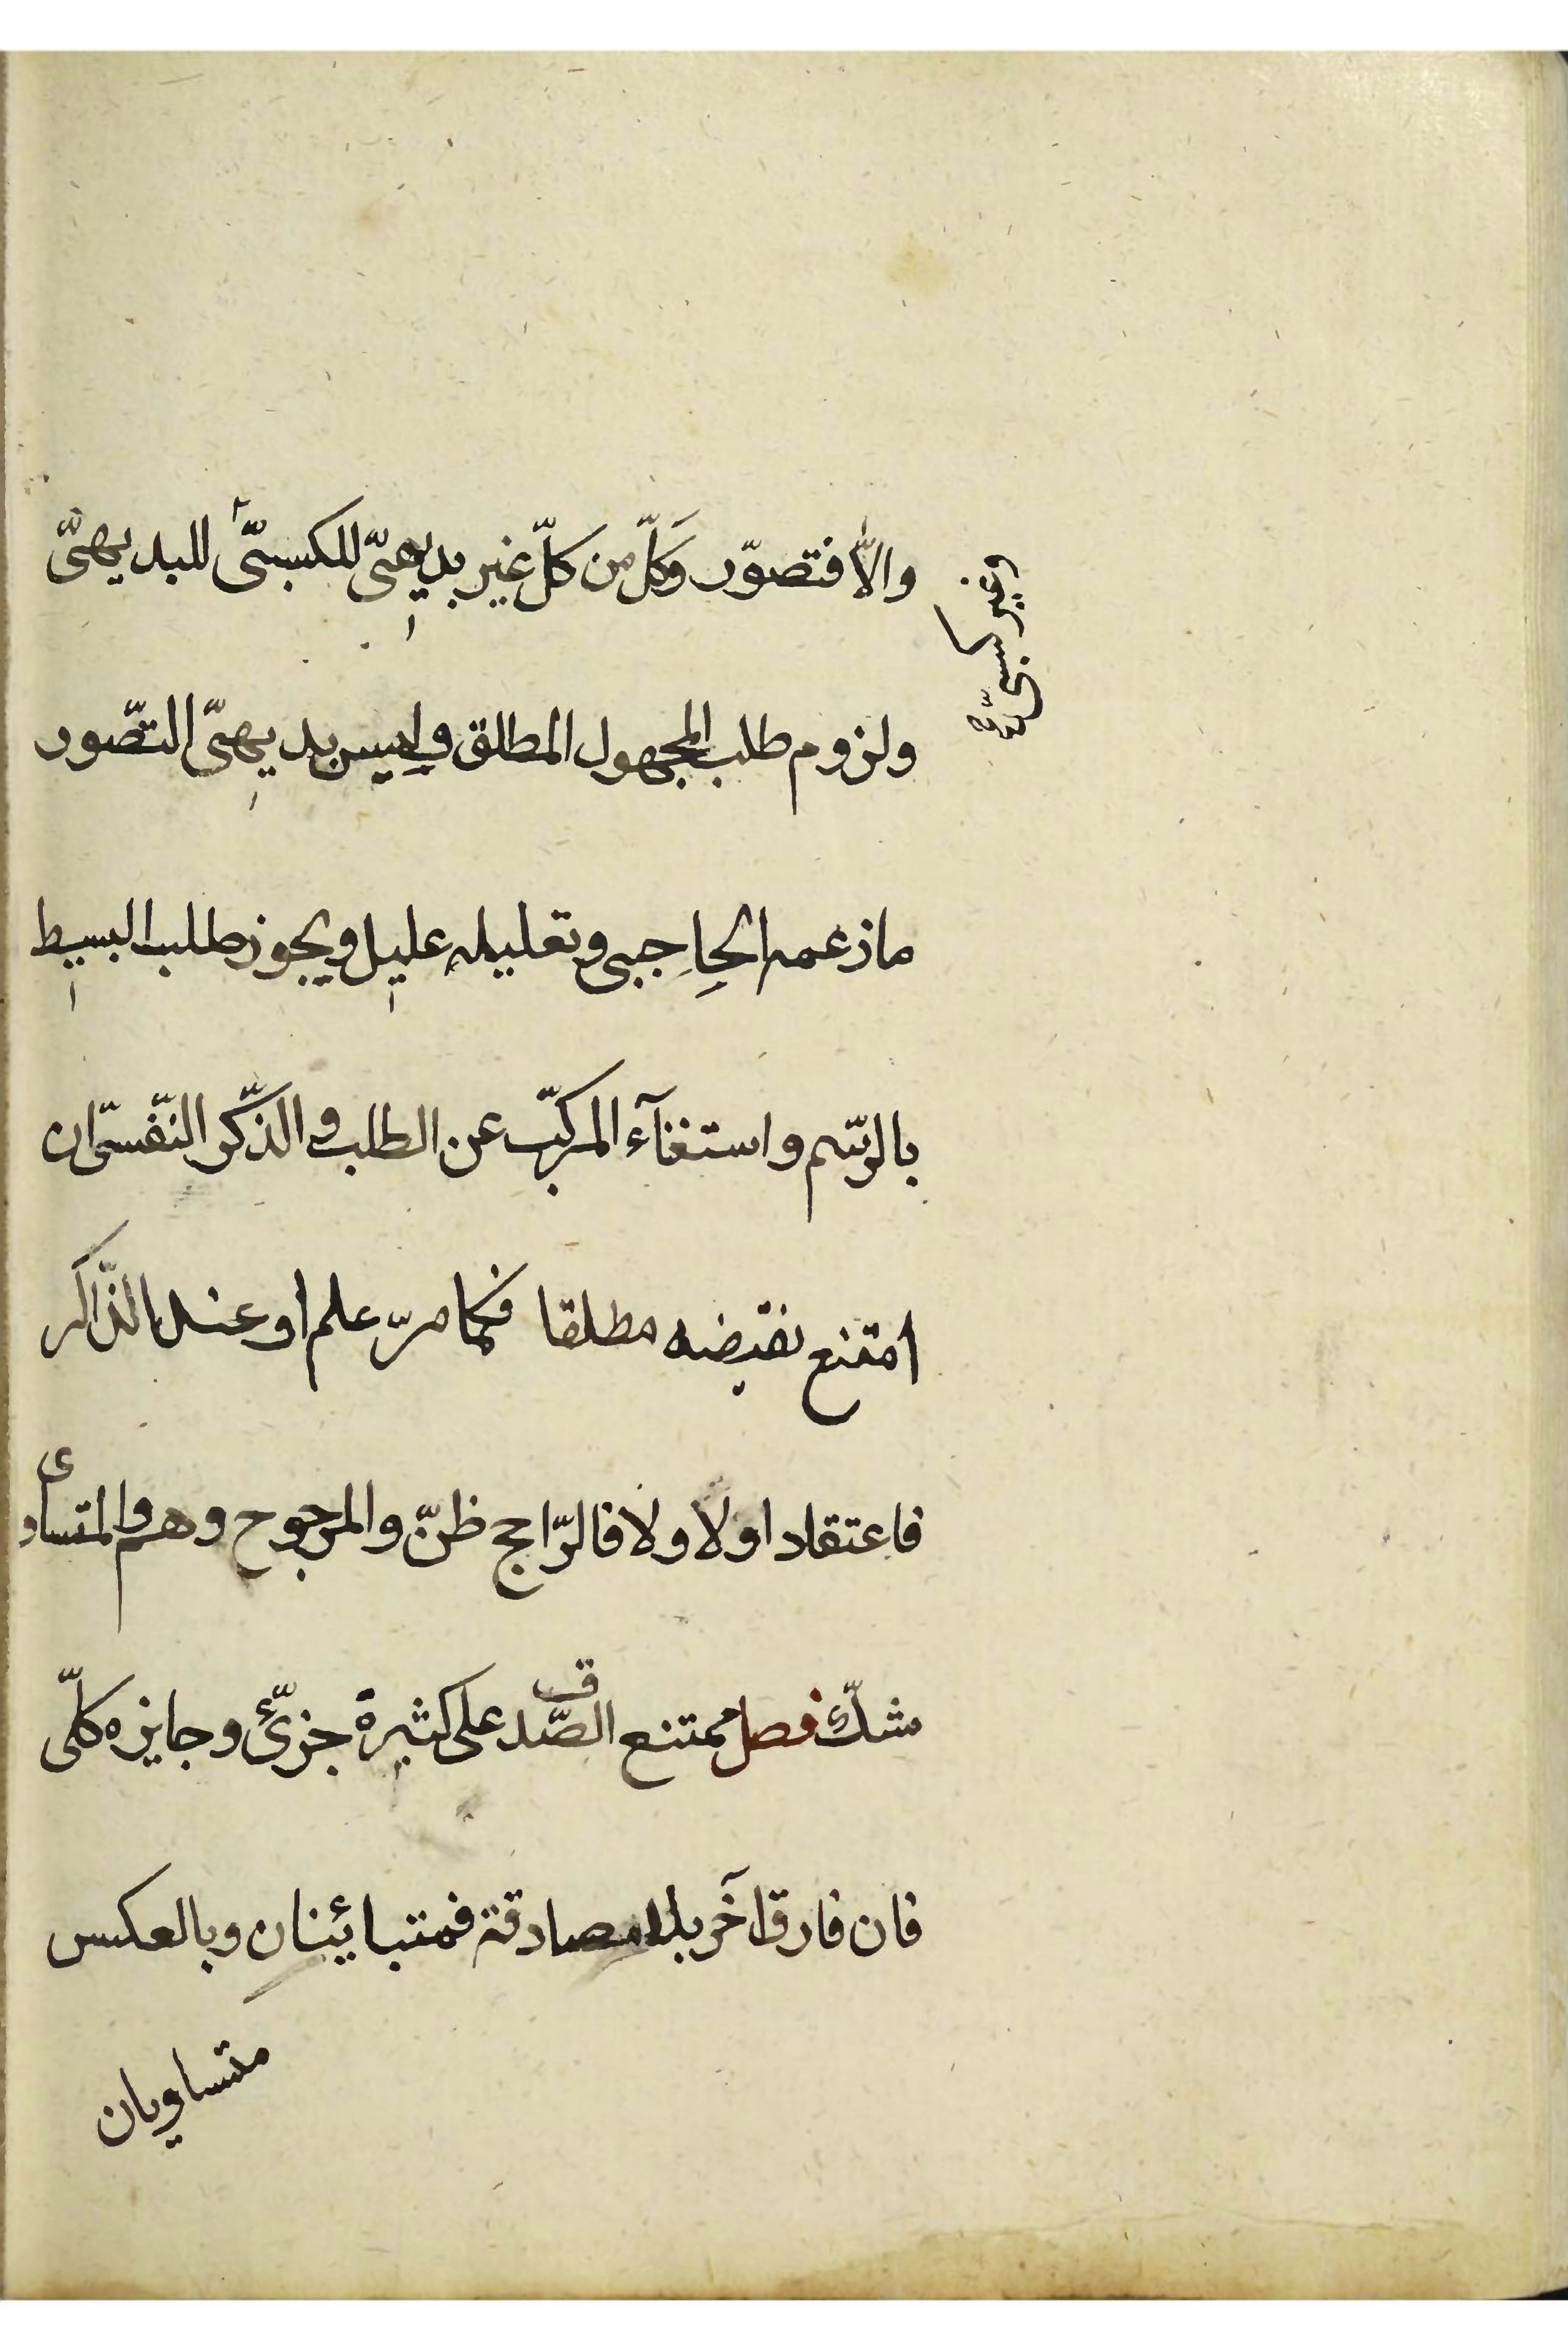 والّا فتصوّر وَكلّ من كلّ غير بديهىّ للكسبىّ للبديهىّ
وغير كسبىّ صح
ولزوم طلب المجهول المطلق وليس بديهىّ التصّور
مازعمه الحاجبى وتعليله عليل ويجوز طلب البسيط
بالرّسم واستغنآء المركبّ عن الطلب والذّكر النّفسىّ ان
امتنع نقيضه مطلقا فكما مرّ علم او عند الذّاكر
فاعتقاد اولا ولا فالرّاجح ظنّ والمرجوح وهم والمتساوى
شكّ فصل ممتنع الصّدق على كثيرة جزئىّ وجايزه كلّى
فان فارق آخر بلا مصادقة فمتبائينان وبالعكس
متساويان